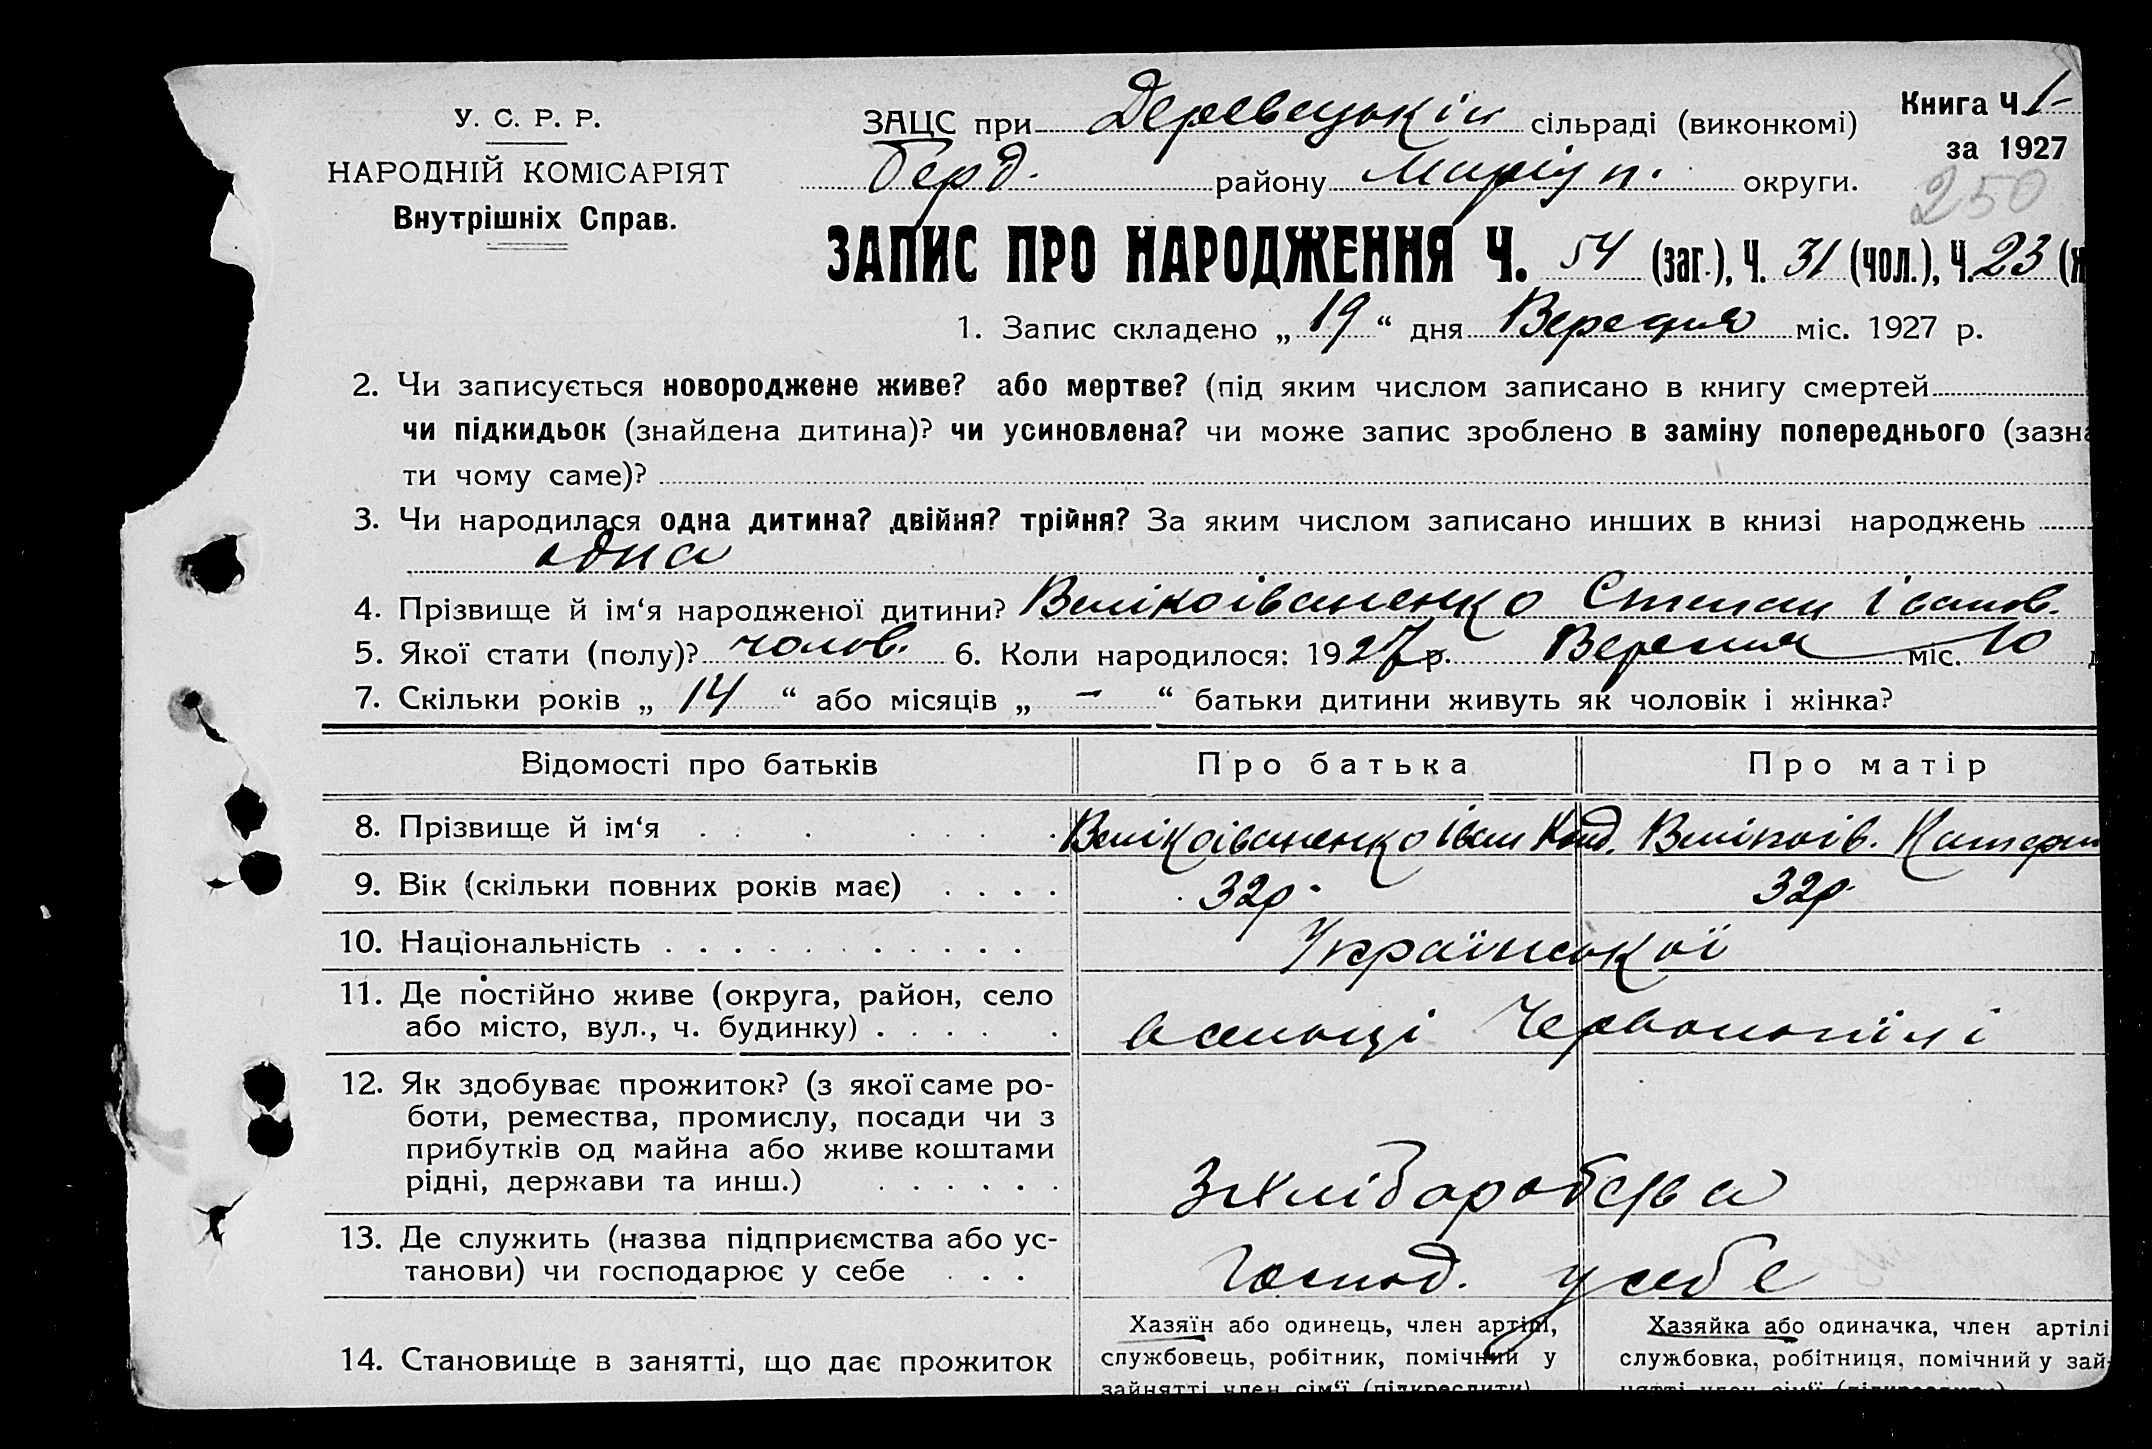 У. С. Р. Р.
НАРОДНІЙ КОМІСАРІЯТ
Внутрішніх Справ.
ЗАЦС при Деревецькій сільраді (виконкомі)
Берд. району Маріуп. округи.
Книга Ч. 1-
за 1927
250
ЗАПИС ПРО НАРОДЖЕННЯ Ч. 54 (заг.), Ч. 31 (чол.), Ч. 23 (ж
1. Запис складено „ 19 “ дня Вересня міс. 1927 р.
2. Чи записується новороджене живе? або мертве? (під яким числом записано в книгу смертей
чи підкидьок (знайдена дитина)? чи усиновлена? чи може запис зроблено в заміну попереднього (зазна
ти чому саме)?
3. Чи народилася одна дитина? двійня? трійня? За яким числом записано инших в книзі народжень
одна
4. Прізвище й ім‘я народженої дитини? Велікоіваненко Степан Іванов.
5. Якої стати (полу)? чолов. 6. Коли народилося: 1927 р. Вересня міс. 10 д
7. Скільки років „ 14 “ або місяців „ - “ батьки дитини живуть як чоловік і жінка?
Відомості про батьків Про батька Про матір
8. Прізвище й ім‘я Велікоіваненко Іван Конд. Велікоів. Катери
9. Вік (скільки повних років має) 32р. 32р.
10. Національність Української
11. Де постійно живе (округа, район, село
або місто, вул., ч. будинку) в сельці Червонопілі
12. Як здобуває прожиток? (з якої саме ро-
боти, ремества, промислу, посади чи з
прибутків од майна або живе коштами
рідні, держави та инш.) З хліборобства
13. Де служить (назва підприємства або ус-
танови) чи господарює у себе Господ. у себе
14. Становище в занятті, що дає прожиток
Хазяїн або одинець, член артілі,
службовець, робітник, помічний у
зайнятті член сім‘ї (підкреслити)
Хазяйка або одиначка, член артілі
службовка, робітниця, помічний у зай-
нятті член сім‘ї (підкреслити)